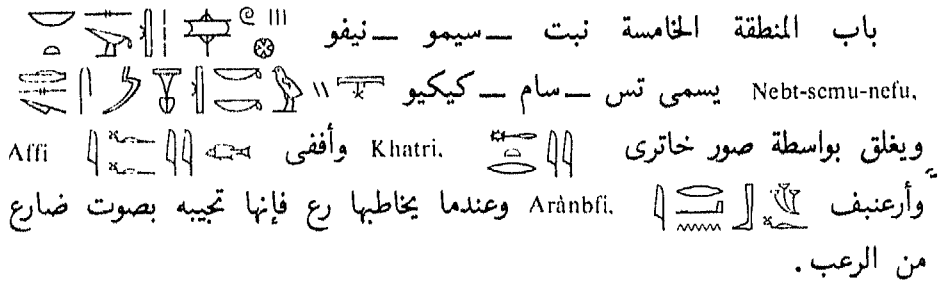 باب المنطقة الخامسة نبت ــ سيمو ــ نيفو
Nebt-semu-nefu, يسمى تس ــ سام ــ كيكيو
ويغلق بواسطة صور خاترى Khatri. وأففى Affi
وأرعنبف Arànbfi. وعندما يخاطبها رع فإنها تجيبه بصوت ضارع
من الرعب .